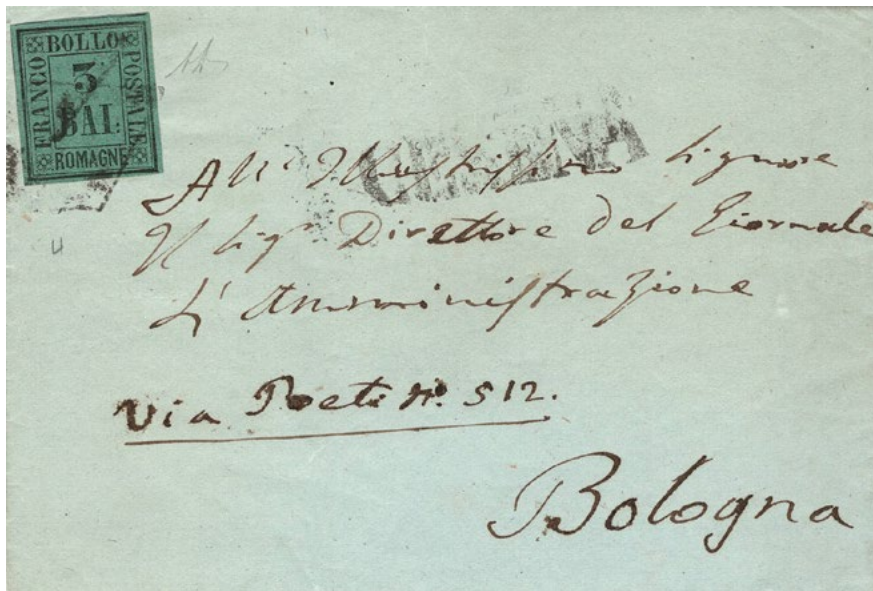 FRANCO BOLLO POSTALE
3
BAI:
ROMAGNE
CESENA
All' Illustrissimo Signore
Il Sigr Direttore del Giornale
L'Amministrazione
Via Poeti N.º 512.
Bologna